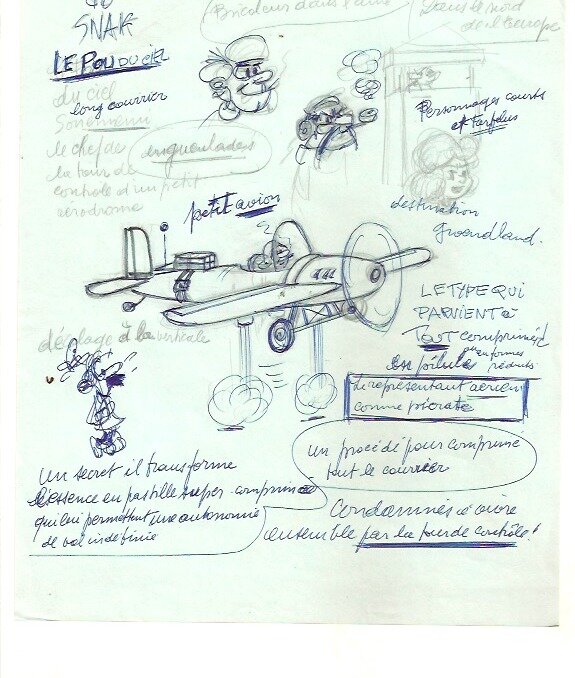 SNAK
Bricoleur dans l'âme
Dans le nord
de l'Europe
LE POU DU CIEL
du ciel
long courrier
le chef de
la tour de
contrôle d'un petit
aérodrome
engueulades
Personnages courts
et farfelus
petit avion
destination
Groendland.
décolage à la verticale
LE TYPE QUI
PARVIENT à
TOUT comprimer
en pilules
ou en formes
réduits
Le représentant aérien
comme piécrate
un procédé pour comprimé
tout le courrier
un secret il transforme
l'essence en pastille super-comprimée
qui lui permettent une autonomie
de vol indéfinie
Condamnés à vivre
ensemble par la tour de contrôle!